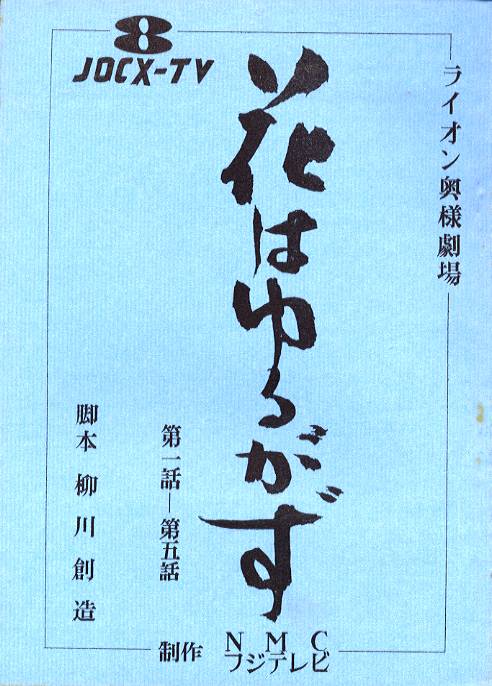 8
JOCX-TV
ライオン奥様劇場
花はゆるがず
第一話―第五話
脚本 柳川創造
制作 NMC
フジテレビ